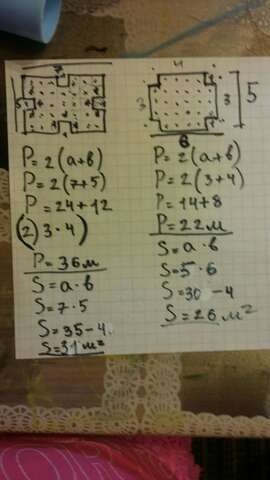 7
5
P=2(a+b)
P=2(7+5)
P=24+12
(2)3·4)
P=36м
S=a·b
S=7·5
S=35-4.
S=31м²
4
3
3
5
6
P=2(a+b)
P=2(3+4)
P=14+8
P=22м
S=a·b
S=5·6
S=30-4
S=26м²